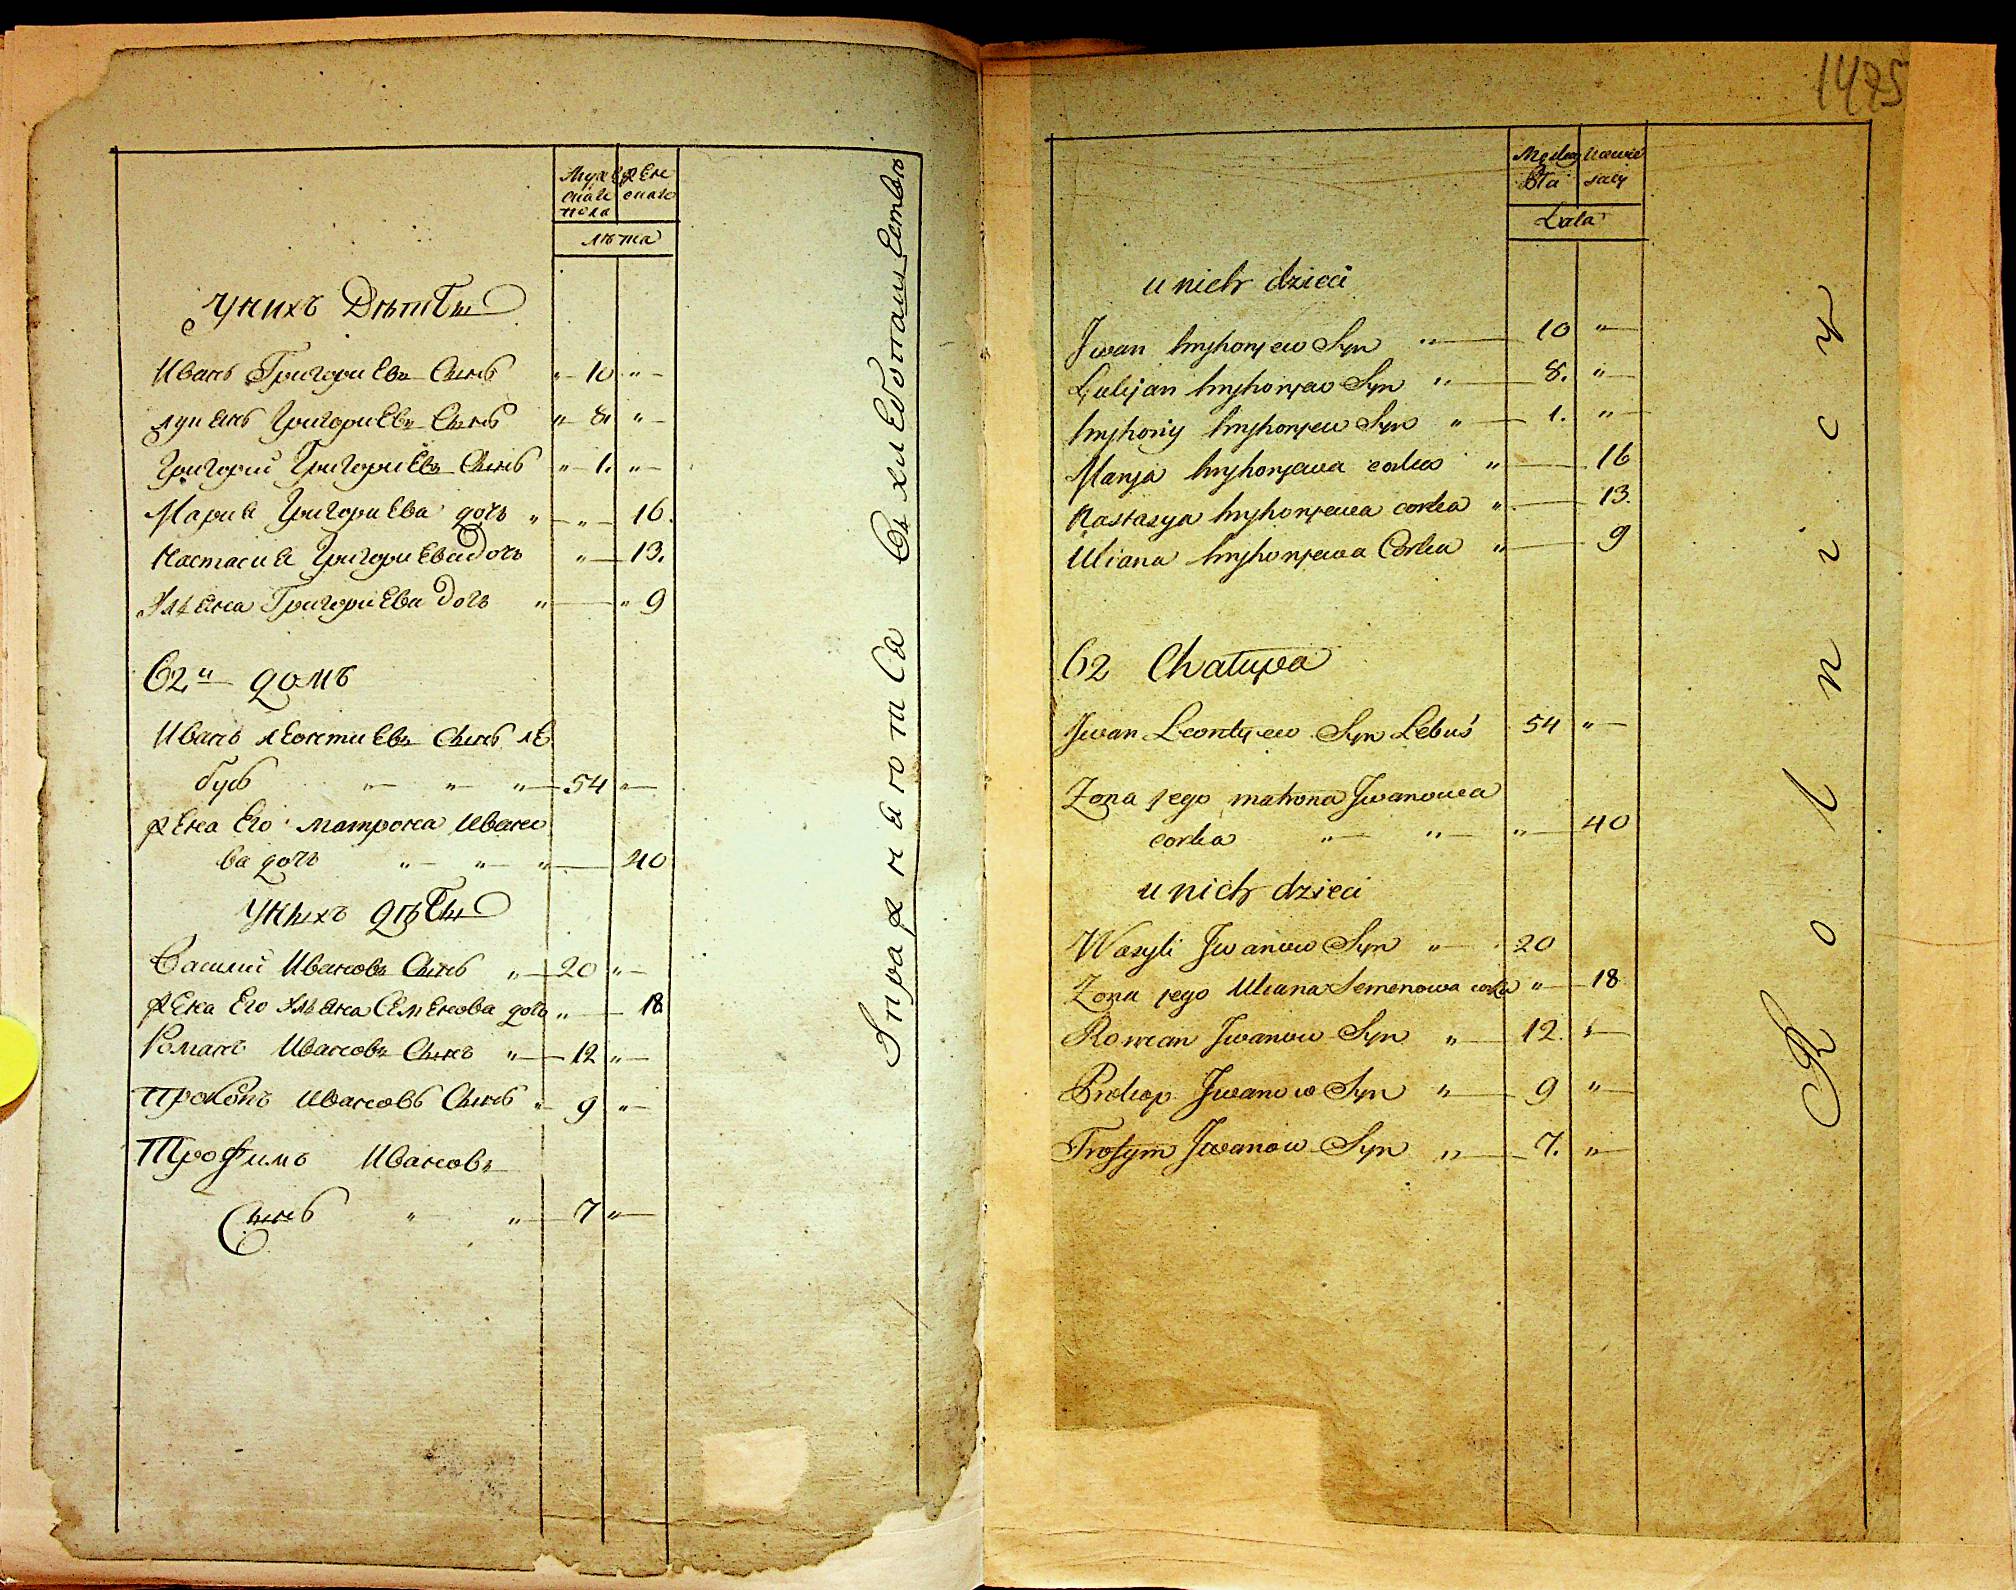 Муже
скаго
пола
Жен
скаго
лѣта
У нихъ Дѣти
Иванъ Григориевъ Сынъ " 10 "
лукянъ Григориевъ Сынъ " 8. "
Григорий Григориевъ Сынъ " 1. "
Мария Григориева дочь " " 16.
Настасия Григориева Дочь " 13.
Ульяна Григориева Дочь " " 9
62й домъ
Иванъ леонтиевъ Сынъ ле
бусь " " " 54 "
жена Его матрона Ивано
ва дочь " " " 40
У нихъ дѣти
Василий Ивановъ Сынъ " 20 "
жена Его Ульяна Семенова дочь " 18
Романъ Ивановъ Сынъ " 12 "
Прокопъ Ивановъ Сынъ " 9 "
Трофимъ Ивановъ
Сынъ " " 7 "
1475
Męska
Płci
Lata
u nich dzieci
Jwan Hryhoryew Syn " 10 "
Lukjan Hryhoryew Syn " 8. "
Hryhoriy Hryhoryew Syn " 1. "
Marya Hryhoryewa corka " 16
Nastasya Hryhoryewa corka " 13.
Uliana Hryhoryewa Corka " 9
62 Chałupa
Jwan Leontyew Syn Lebuś 54 "
Zona jego matrona Jwanowa
corka " " " 40
u nich dzieci
Wasyli Jwanow Syn " 20
Zona jego Uliana Semenowa corka " 18
Roman Jwanow Syn " 12. "
Prokop Jwanow Syn " 9 "
Trofym Jwanow Syn " 7. "
Rolnicy